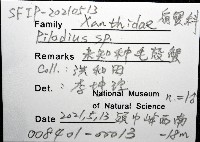 SFIP-20210513
Family Xanthidae 扇蟹科
Pilodius sp.
Remarks 未知种毛殼蟹
Coll.: 洪和田
Det.: 李坤瑄
National Museum of Natural Science
n=10
Date 2021,5,13
-18m
008401-00013